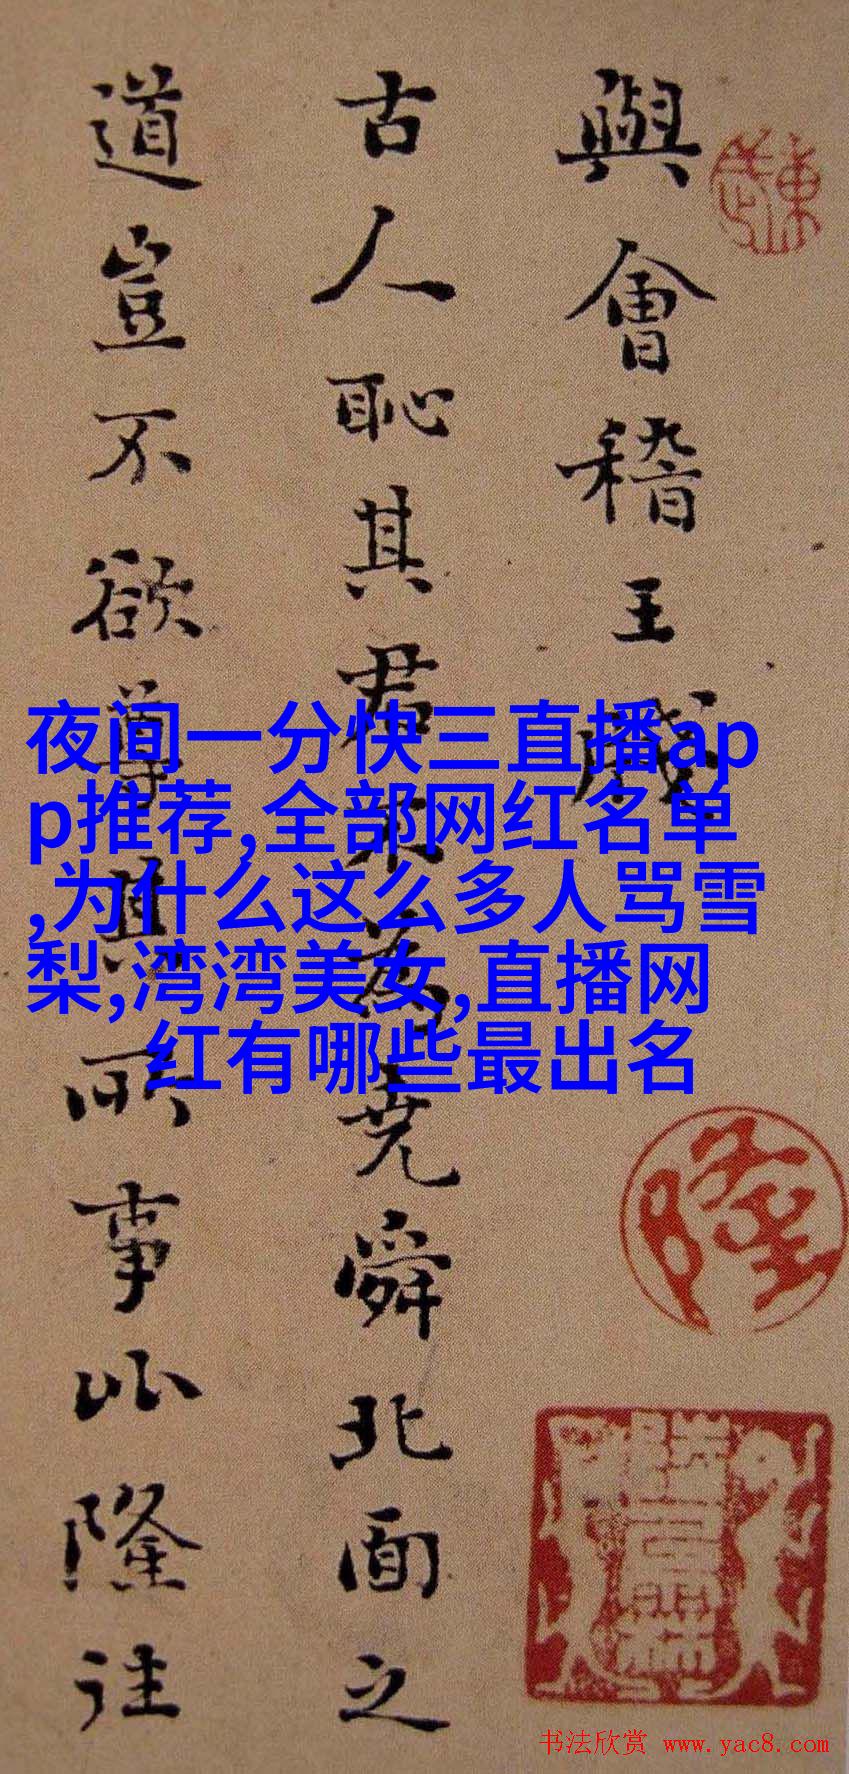 與會稽王牋
古人恥其君不為堯舜北面之
道豈不欲尊其所事比隆往
隆
夜间一分快三直播ap
p推荐,全部网红名单
,为什么这么多人骂雪
梨,湾湾美女,直播网
红有哪些最出名
书法欣赏 www.yac8.com